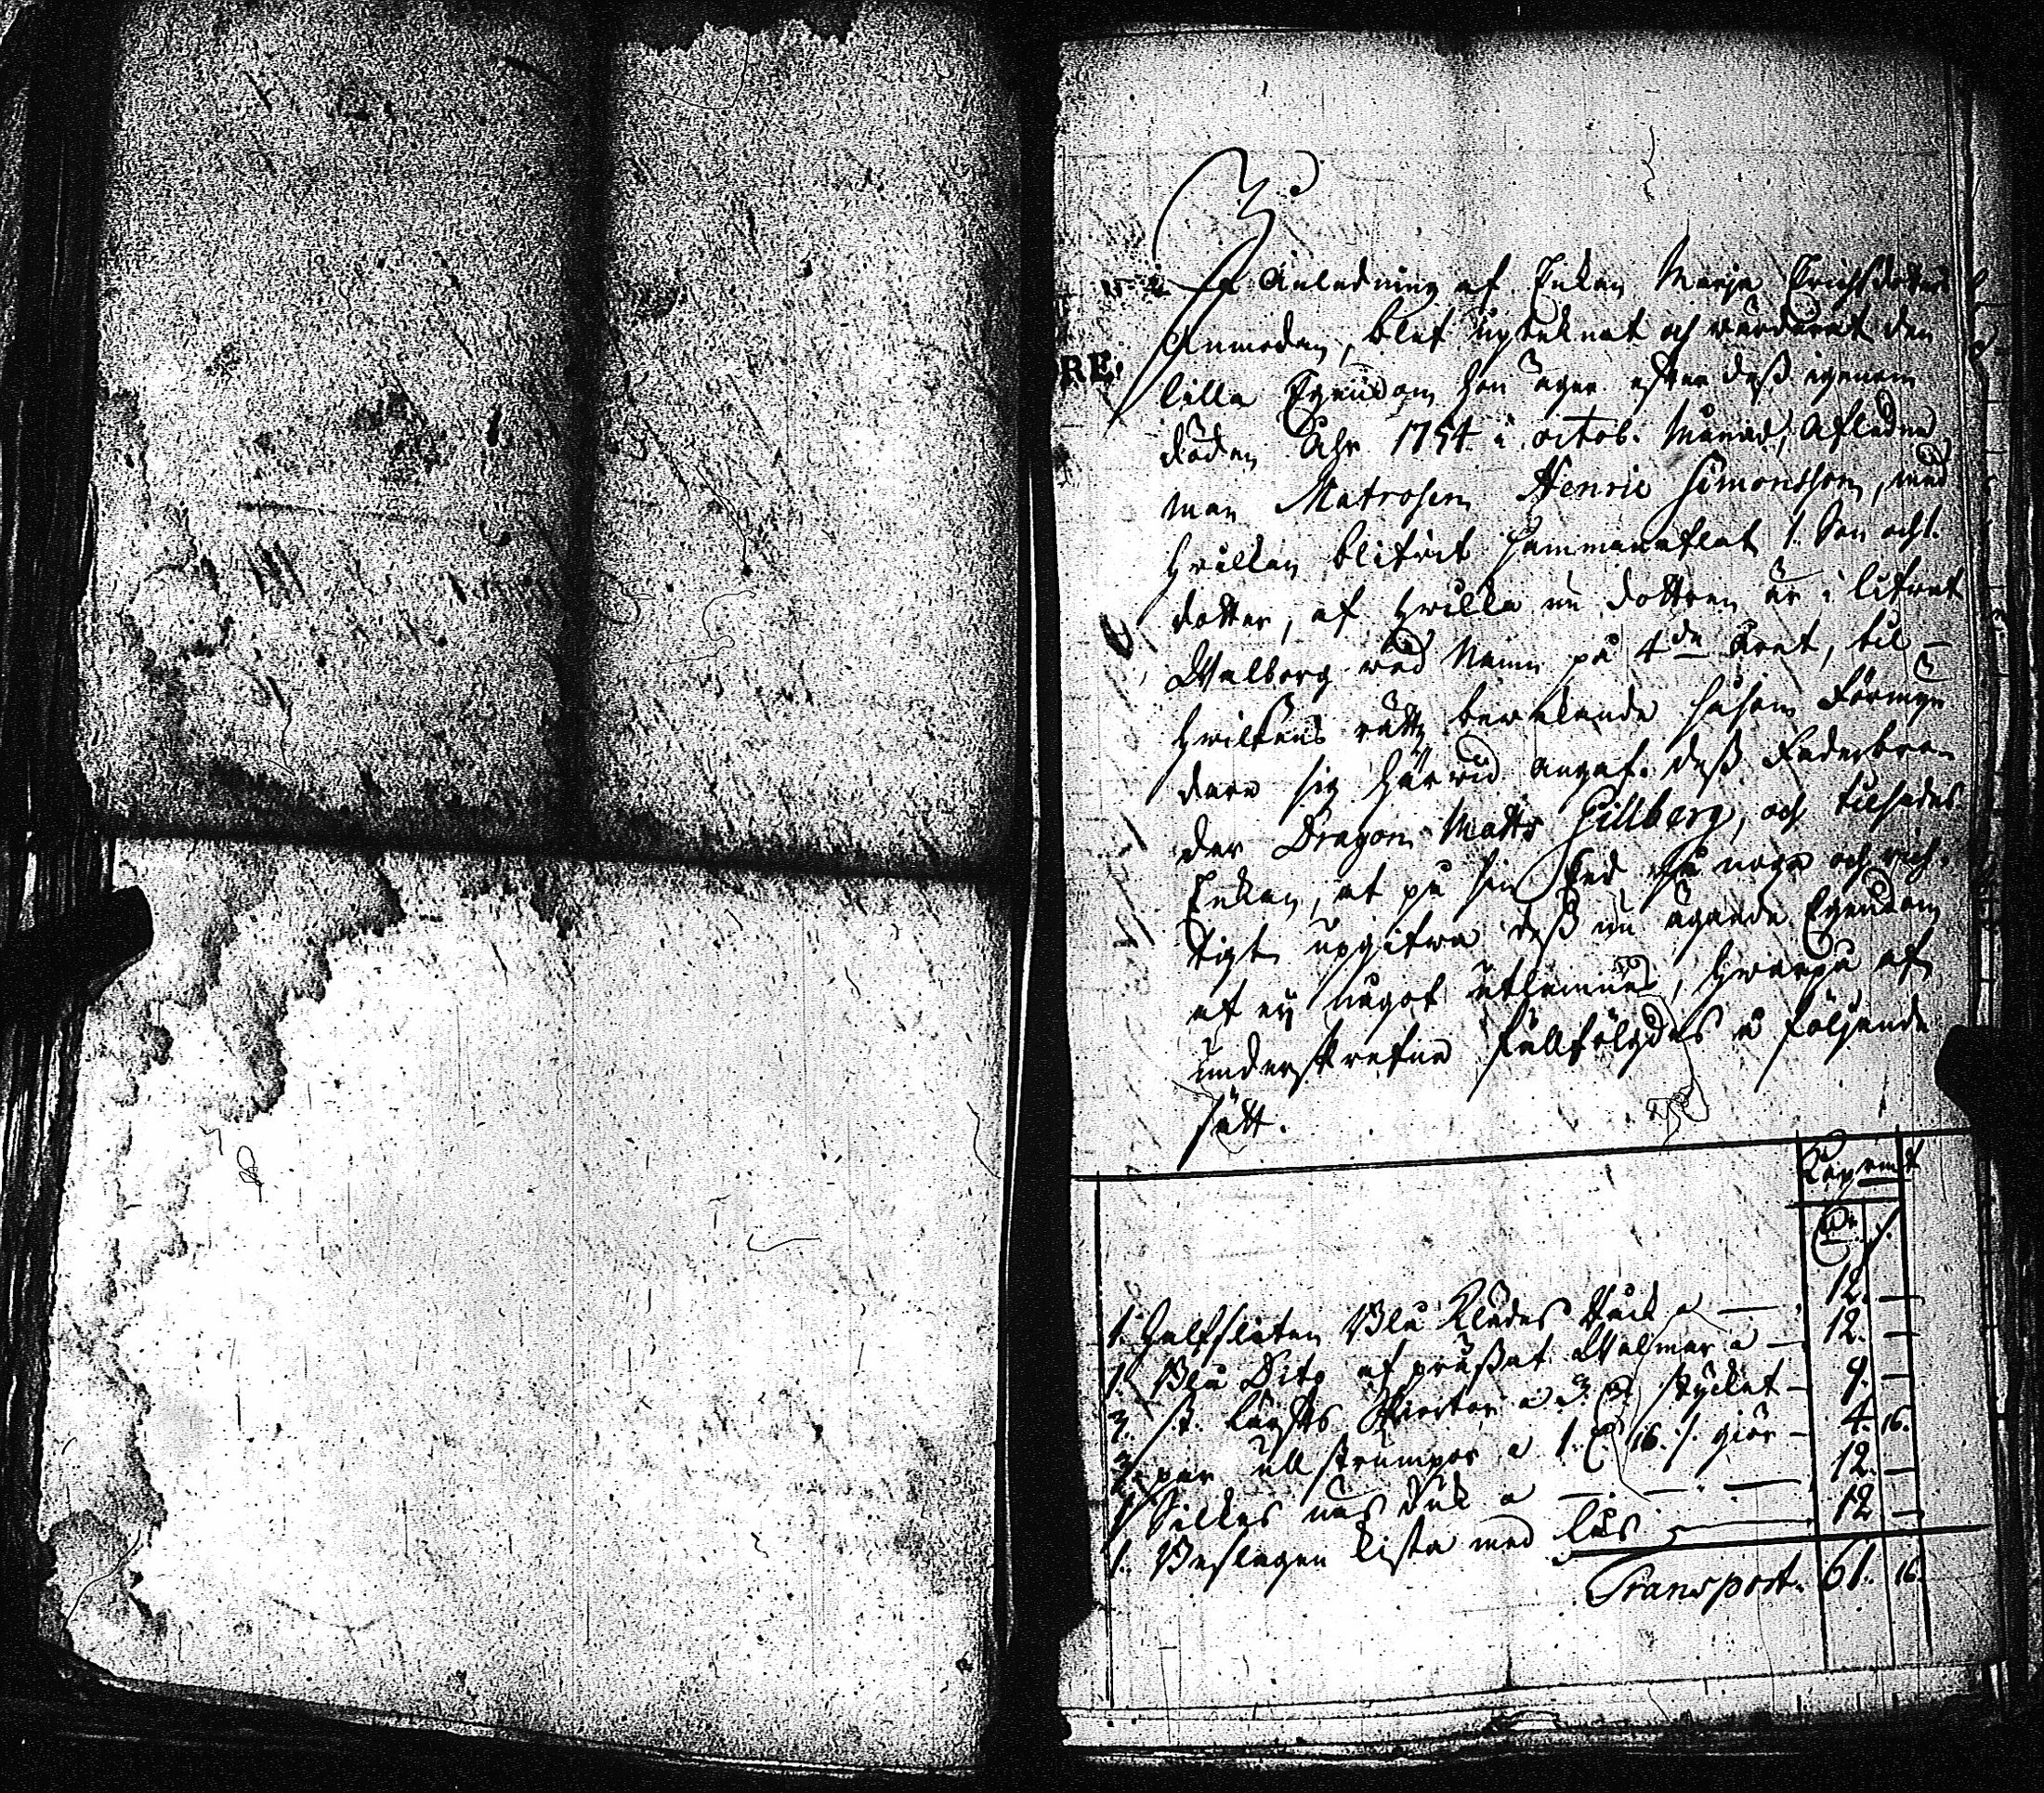 På Anledning af Enkan Marja Erichsdotters
Anmodan, blef uptecknat och wärderat den
RE.
lilla Egendom hon äger efter dess igenom
döden Åhr 1754 i octob. Månad, afledne
man Matrosen Henric Simonsson, med
hvilken blifvit sammanaflat 1. Son och 1.
dotter, af hvilka nu dottren är i lifwet
Walborg wid Namn på 4de Året, til
hvilkens rätts bewakande såsom Förmyn
dare sig härwid angaf dess Faderbro-
der Dragon Matts Gillberg, och tilsades
Enkan, at på sin Ed noga och rich-
tigt upgifwa dess nu ägande Egendom
at ej något utlämnes, hwarpå af
underskrefne fullfölgdes å följande
sätt.
Kopremt
Dr. /.
1. Halfsliten Blå Klädes 12. —
1. Blå Dito af prässat Walmar a — 12. —
3. st. lärfts Skiortor a 3. Dr stycket — 9. —
3. par ullstrumpor a 1. D. 16. /. giör — 4. 16.
1 Silkes näsduk a — 12. —
1. Beslagen Kista med lås — 12 —
Transport. 61. 16.